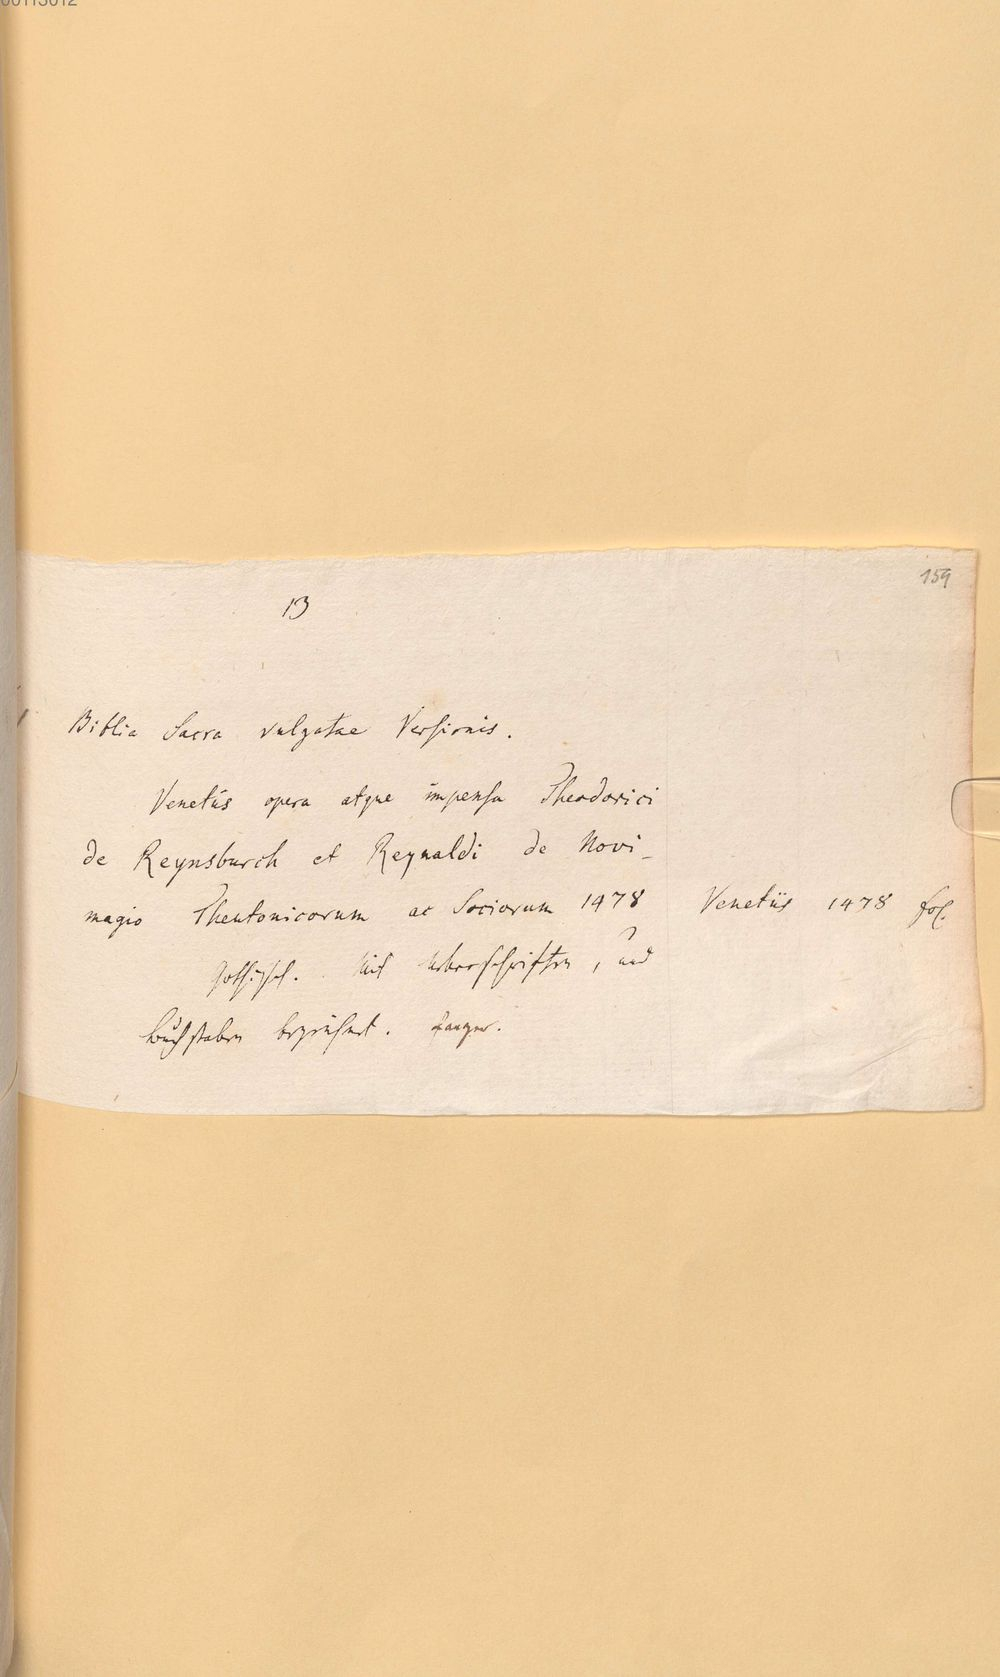 00113012
159
13
Biblia Sacra vulgatae Versionis.
Venetiis opera atque impensa Theodorici
de Reynsburch et Reynaldi de Novi-
magio Theutonicorum ac Sociorum 1478 Venetiis 1478 fol.
Gothisch. Mit Ueberschriften, und
Buchstaben bezeichnet.